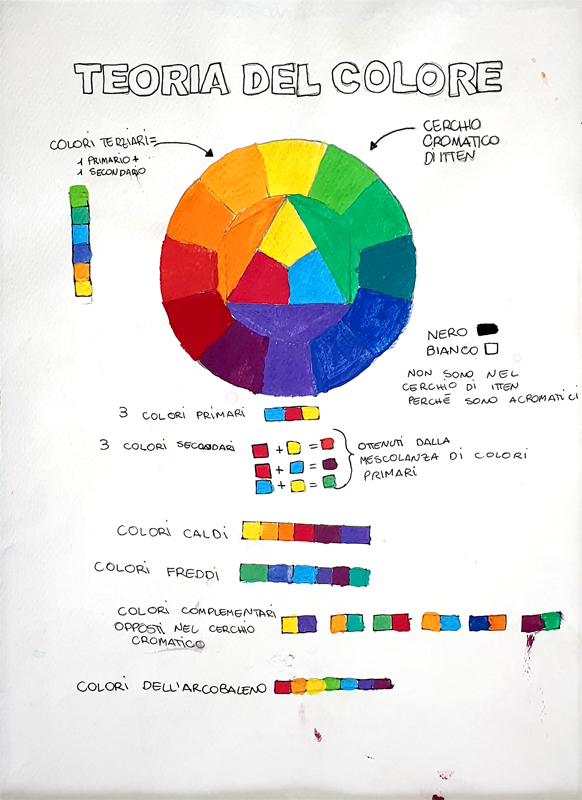 TEORIA DEL COLORE
COLORI TERZIARI=
1 PRIMARIO +
1 SECONDARIO
CERCHIO
CROMATICO
DI ITTEN
NERO
BIANCO
NON SONO NEL
CERCHIO DI ITTEN
PERCHÉ SONO ACROMATICI
3 COLORI PRIMARI
3 COLORI SECONDARI
+ =
+ =
+ =
OTTENUTI DALLA
MESCOLANZA DI COLORI
PRIMARI
COLORI CALDI
COLORI FREDDI
COLORI COMPLEMENTARI
OPPOSTI NEL CERCHIO
CROMATICO
COLORI DELL'ARCOBALENO